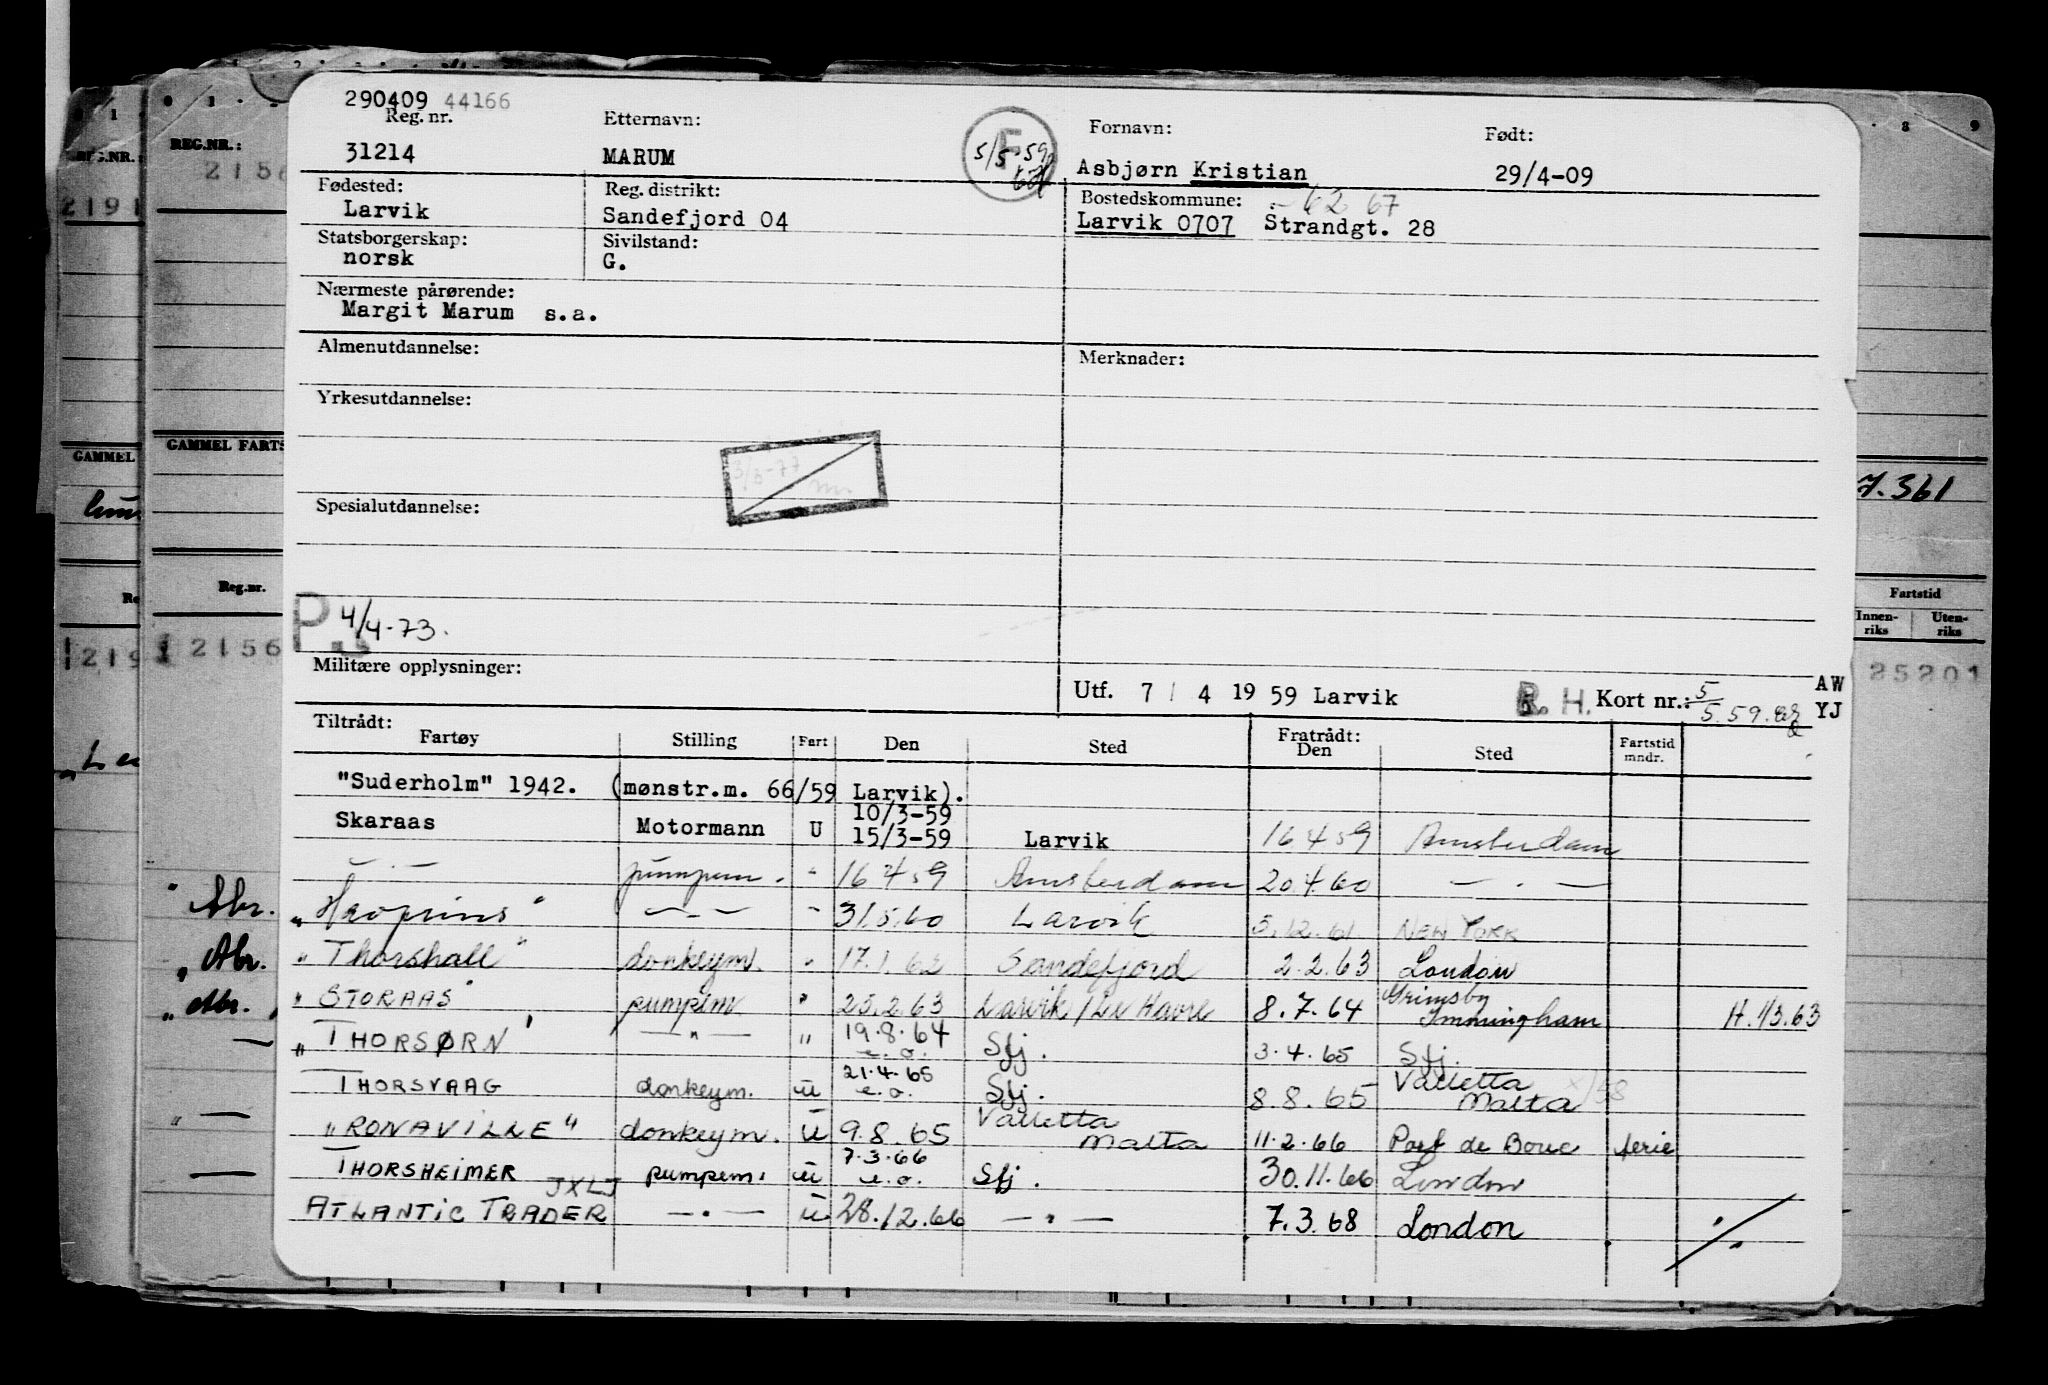 290409 44166
Reg. nr.
31214
Etternavn:
MARUM
F
5/5-59
Fornavn:
Asbjørn Kristian
Født:
29/4-09
Fødested:
Larvik
Reg. distrikt:
Sandefjord 04
Bostedskommune: - 62 67
Larvik 0707 Strandgt. 28
Statsborgerskap:
norsk
Sivilstand:
G.
Nærmeste pårørende:
Margit Marum s.a.
Almenutdannelse:
Merknader:
Yrkesutdannelse:
3/3-77
Spesialutdannelse:
P. 4/4-73.
Militære opplysninger:
Utf. 7 / 4 1959 Larvik
R. H. Kort nr.: 5/5.59.
AW
YJ
Tiltrådt:
Fartøy Stilling Fart Den Sted Fratrådt: Den Sted Fartstid mndr.
"Suderholm" 1942. (mønstr.m. 66/59 Larvik).
10/3-59
Skaraas Motormann U 15/3-59 Larvik 16 4 59 Amsterdam
— . — pumpem. " 16 4 59 Amsterdam 20.4.60 — . —
"Havprins" — " — " 31.5.60 Larvik 5.12.61 NEW YORK
"Thorshall" donkeym. " 17.1.62 Sandefjord 2.2.63 London
"STORAAS" pumpem. " 25.2.63 Larvik / Le Havre 8.7.64 Grimsby Immingham H. 1/3.63
"THORSØRN" — " — " 19.8.64 e.o. Sfj. 3.4.65 Sfj.
THORSVAAG donkeym. u 21.4.65 e.o. Sfj. 8.8.65 Valletta Malta x) 58
"RONAVILLE" donkeym. u 9.8.65 Valletta Malta 11.2.66 Port de Bouc ferie
THORSHEIMER pumpem. u 7.3.66 e.o. Sfj. 30.11.66 London
JXLJ
ATLANTIC TRADER — . — u 28.12.66 — " — 7.3.68 London
REG.NR.:
REG.NR.:
2156
2191
GAMMEL
GAMMEL FARTS
Reg.nr.
2156
219
"Abr.
"Abr.
"Abr.
8 9
7.361
Fartstid
Innenriks
Utenriks
25201